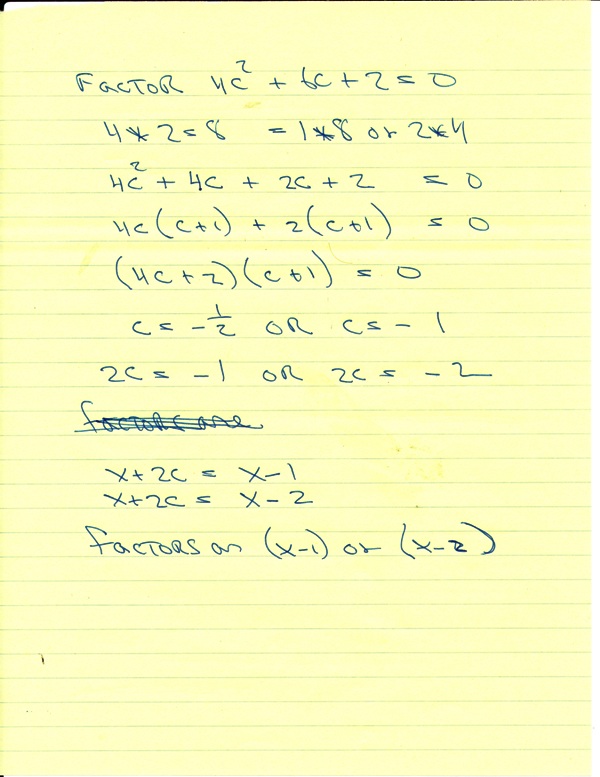 FACTOR 4c² + 6c + 2 = 0
4*2=8 = 1*8 or 2*4
4c² + 4c + 2c + 2 = 0
4c(c+1) + 2(c+1) = 0
(4c+2)(c+1) = 0
c = -1/2 OR c = -1
2c = -1 OR 2c = -2
x+2c = x-1
x+2c = x-2
FACTORS are (x-1) or (x-2)